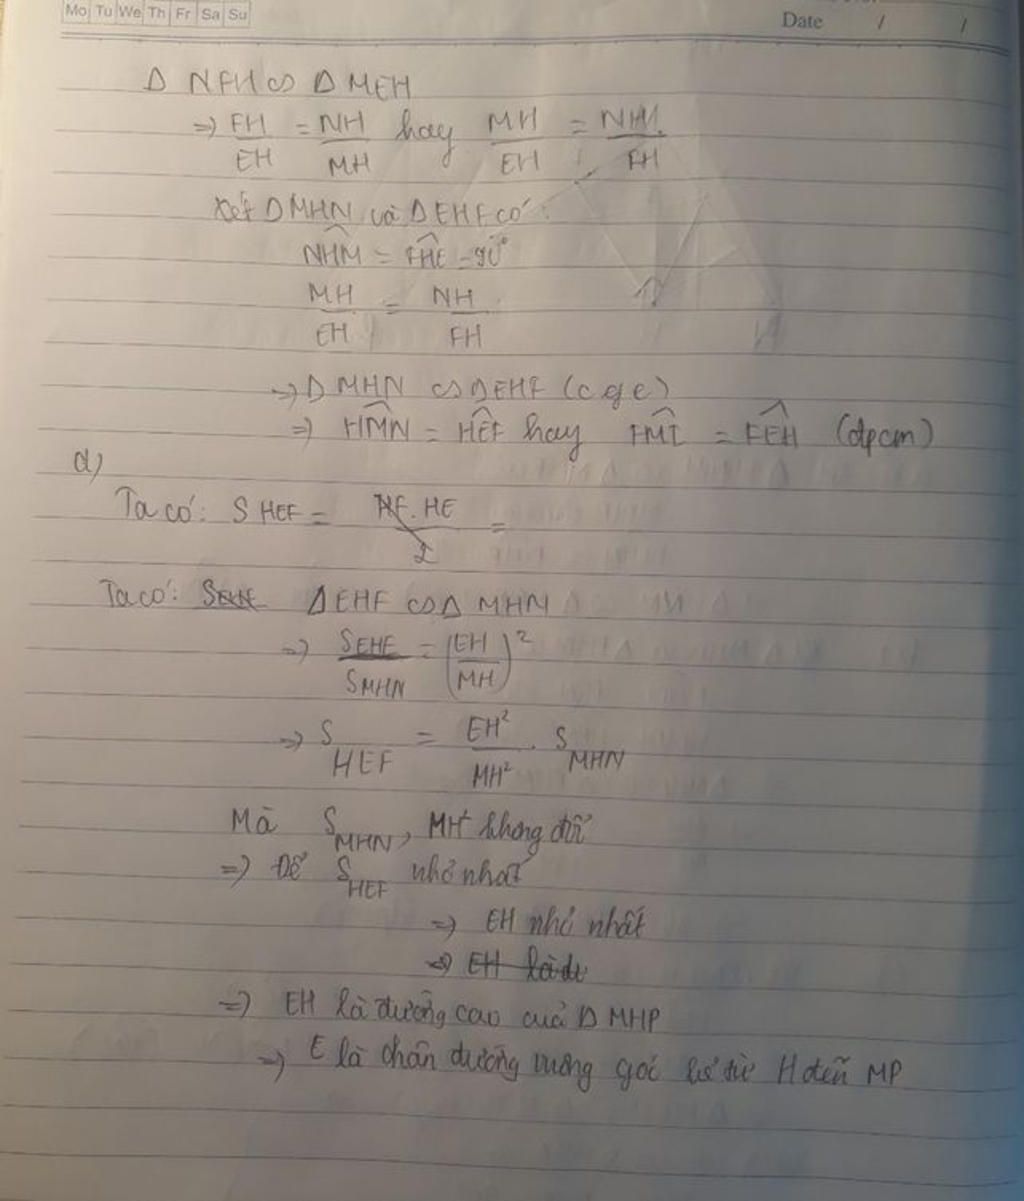 Mo Tu We Th Fr Sa Su
Date / /
Δ NFH ∽ Δ MEH
=> FH/EH = NH/MH hay MH/EH = NH/FH
Xét Δ MHN và Δ EHF có:
NHM = FHE = 90°
MH/EH = NH/FH
=> Δ MHN ∽ Δ EHF (c g c)
=> HMN = HEF hay FMI = FEH (đpcm)
d)
Ta có: S HEF = HF.HE/2 =
Ta có: SEHF Δ EHF ∽ Δ MHN
=> SEHF/SMHN = (EH/MH)²
=> S HEF = EH²/MH² . S MHN
Mà S MHN, MH không đổi
=> Để S HEF nhỏ nhất
=> EH nhỏ nhất
=> EH là đư
=> EH là đường cao của Δ MHP
=> E là chân đường vuông góc kẻ từ H đến MP